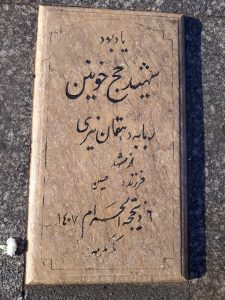 یادبود
شهید حج خونین
ربابه دهقان نیری
از مشهد
فرزند: حسین
۶ ذیحجه الحرام ۱۴۰۷
مکه مکرمه